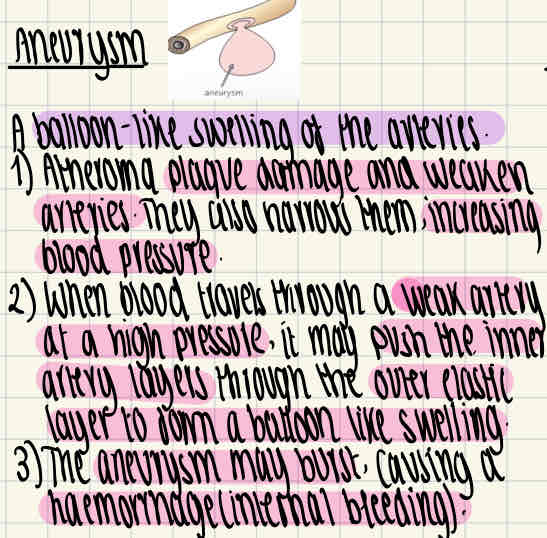 Aneurysm
aneurysm
A balloon-like swelling of the arteries.
1) Atheroma plaque damage and weaken
arteries. They also narrow them, increasing
blood pressure.
2) When blood travels through a weak artery
at a high pressure, it may push the inner
artery layers through the outer elastic
layer to form a balloon like swelling.
3) The aneurysm may burst, causing a
haemorrhage (internal bleeding).